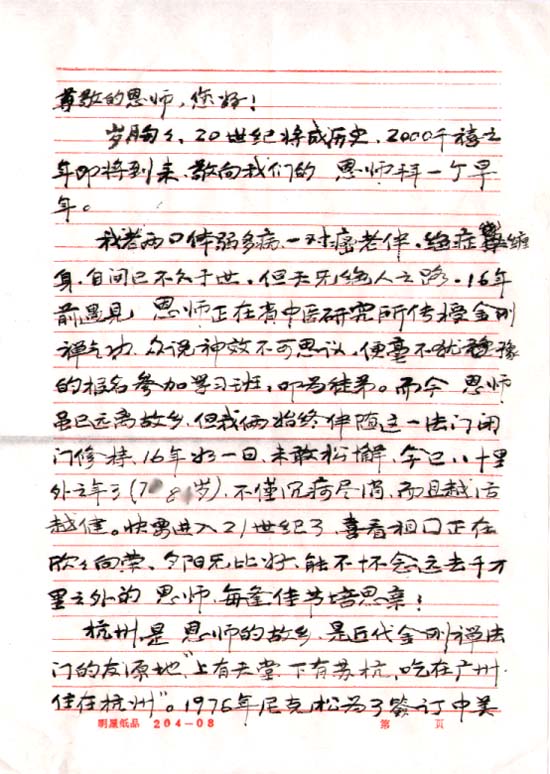 尊敬的恩师，您好！
岁月匆匆，20世纪将成历史，2000千禧之
年即将到来，敬向我们的 恩师拜一个早
年。
我老两口体弱多病，一对癌老伴，绝症缠
身，自问已不久于世，但天无绝人之路，16年
前遇见 恩师正在省中医研究所传授金刚
禅气功，众说神效不可思议，便毫不犹豫
的报名参加学习班，叩为徒弟。而今 恩师
虽已远离故乡，但我俩始终伴随这一法门闭
门修持，16年如一日，未敢松懈，今已八十里
外之年了(7 8 岁)，不仅沉疴尽消，而且越活
越健。快要进入21世纪了，喜看祖国正在
欣欣向荣，夕阳无比好，能不怀念远去千万
里之外的 恩师，每逢佳节培思亲！
杭州是 恩师的故乡，是近代金刚禅法
门的发源地“上有天堂下有苏杭，吃在广州，
住在杭州”。1976年尼克松为了签订中美
明厘纸品 204-08 第 页